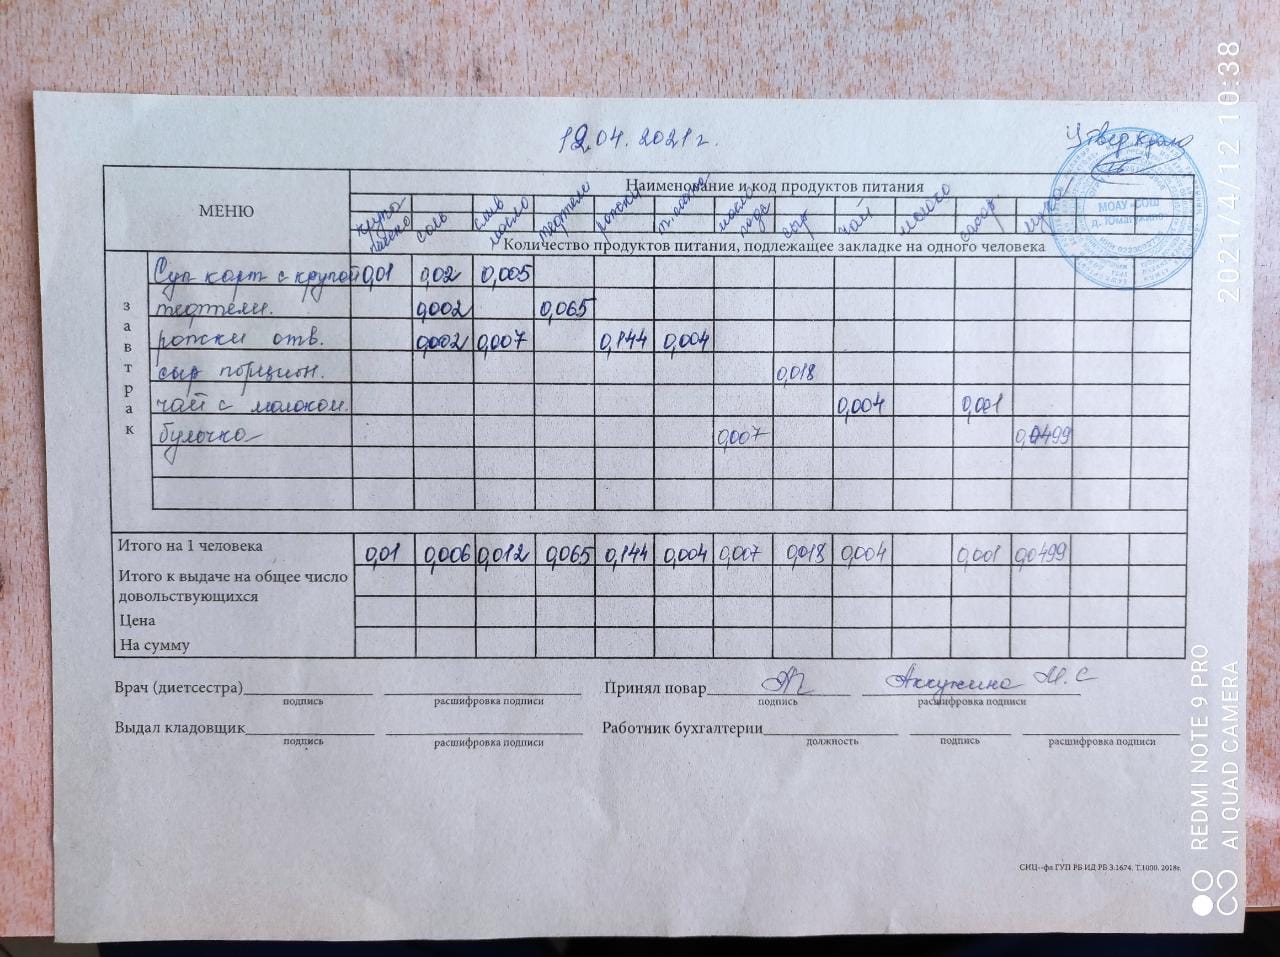 12.04.2021 г.
Утверждаю
МОАУ СОШ
д. Юмагужино
МЕНЮ
Наименование и код продуктов питания
крупа пшено соль слив масло тефтели рожки т. паста масло подс сыр чай молоко сахар мука
Количество продуктов питания, подлежащее закладке на одного человека
завтрак
Суп карт с крупой 0,01 0,02 0,005
тефтели. 0,002 0,065
рожки отв. 0,002 0,007 0,144 0,004
сыр порцион. 0,018
чай с молоком. 0,004 0,001
булочка 0,007 0,0499
Итого на 1 человека 0,01 0,006 0,012 0,065 0,144 0,004 0,007 0,018 0,004 0,001 0,0499
Итого к выдаче на общее число
довольствующихся
Цена
На сумму
Врач (диетсестра) Принял повар Аккужина М. С
подпись расшифровка подписи подпись расшифровка подписи
Выдал кладовщик Работник бухгалтерии
подпись расшифровка подписи должность подпись расшифровка подписи
СИЦ--фа ГУП РБ ИД РБ З.1674. Т.1000. 2018г.
REDMI NOTE 9 PRO
AI QUAD CAMERA
2021/4/12 10:38